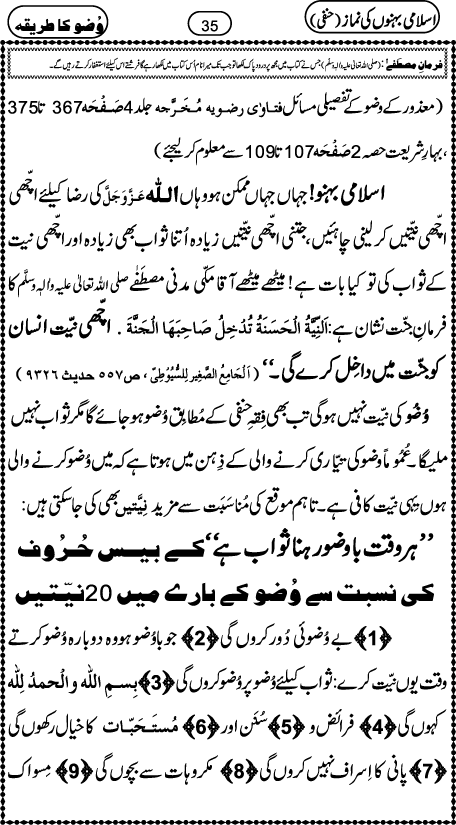 اسلامی بہنوں کی نماز (حنفی)
35
وُضو کا طریقہ
فرمانِ مصطفےٰ: (صلی اللہ تعالیٰ علیہ والہ وسلم) جس نے کتاب میں مجھ پر درود پاک لکھا تو جب تک میرا نام اُس کتاب میں لکھا رہے گا فرشتے اس کیلئے استغفار کرتے رہیں گے۔
(معذور کے وضو کے تفصیلی مسائل فتاوٰی رضویہ مُخَرَّجہ جلد 4 صَفْحَہ 367 تا 375
، بہارِ شریعت حصہ 2 صَفْحَہ 107 تا 109 سے معلوم کر لیجئے)
اسلامی بہنو! جہاں جہاں ممکن ہو وہاں اللہ عَزَّوَجَلَّ کی رضا کیلئے اچھی
اچھی نیّتیں کر لینی چاہئیں، جتنی اچھی نیّتیں زیادہ اُتنا ثواب بھی زیادہ اور اچھی نیت
کے ثواب کی تو کیا بات ہے! میٹھے میٹھے آقا مکّی مدنی مصطَفٰے صلی اللہ تعالیٰ علیہ والہٖ وسلَّم کا
فرمانِ جنّت نشان ہے: اَلنِّیَّۃُ الْحَسَنَۃُ تُدْخِلُ صَاحِبَھَا الْجَنَّۃَ ۔ اچھی نیّت انسان
کو جنّت میں داخِل کرے گی۔‘‘ (اَلْجامِعُ الصَّغِیر لِلسُّیُوْطِیّ، ص۵۵۷ حدیث ۹۳۲۶)
وُضو کی نیّت نہیں ہوگی تب بھی فِقہِ حنفی کے مُطابِق وُضو ہو جائے گا مگر ثواب نہیں
ملیگا۔ عُمُوماً وضو کی تیّاری کرنے والی کے ذِہن میں ہوتا ہے کہ میں وُضو کرنے والی
ہوں یہی نیّت کافی ہے۔ تاہم موقع کی مُناسَبَت سے مزید نِیَّتیں بھی کی جاسکتی ہیں:
’’ہر وقت باوضو رہنا ثواب ہے‘‘ کے بیس حُرُوف
کی نسبت سے وُضو کے بارے میں 20 نیّتیں
﴿1﴾ بے وُضوئی دُور کروں گی ﴿2﴾ جو باوُضو ہو وہ دوبارہ وُضو کرتے
وقت یوں نیّت کرے: ثواب کیلئے وُضو پر وُضو کروں گی ﴿3﴾ بِسمِ اللہ والْحمدُ لِلّٰہ
کہوں گی ﴿4﴾ فرائض و ﴿5﴾ سُنَن اور ﴿6﴾ مُستَحَبّات کا خیال رکھوں گی
﴿7﴾ پانی کا اِسراف نہیں کروں گی ﴿8﴾ مکروہات سے بچوں گی ﴿9﴾ مِسواک